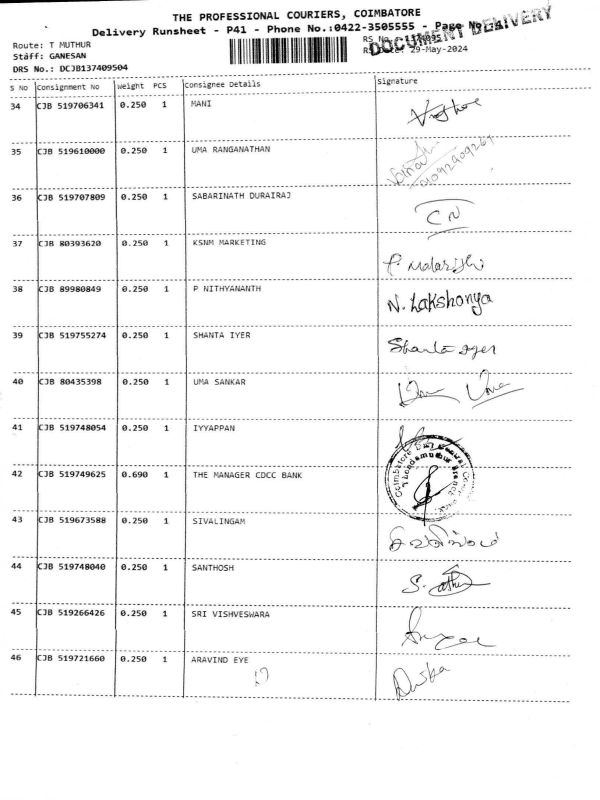 THE PROFESSIONAL COURIERS, COIMBATORE
Delivery Runsheet - P41 - Phone No.:0422-3505555 - Page No.
DOCUMENT DELIVERY
Route: T MUTHUR
RS No.
Staff: GANESAN
29-May-2024
DRS No.: DCJB137409504
S No Consignment No Weight PCS Consignee Details Signature
34 CJB 519706341 0.250 1 MANI
35 CJB 519610000 0.250 1 UMA RANGANATHAN
36 CJB 519707809 0.250 1 SABARINATH DURAIRAJ
37 CJB 80393620 0.250 1 KSNM MARKETING
38 CJB 89980849 0.250 1 P NITHYANANTH N. Lakshanya
39 CJB 519755274 0.250 1 SHANTA IYER
40 CJB 80435398 0.250 1 UMA SANKAR Uma
41 CJB 519748054 0.250 1 IYYAPPAN
42 CJB 519749625 0.690 1 THE MANAGER CDCC BANK
43 CJB 519673588 0.250 1 SIVALINGAM சிவலிங்கம்
44 CJB 519748040 0.250 1 SANTHOSH
45 CJB 519266426 0.250 1 SRI VISHVESWARA
46 CJB 519721660 0.250 1 ARAVIND EYE